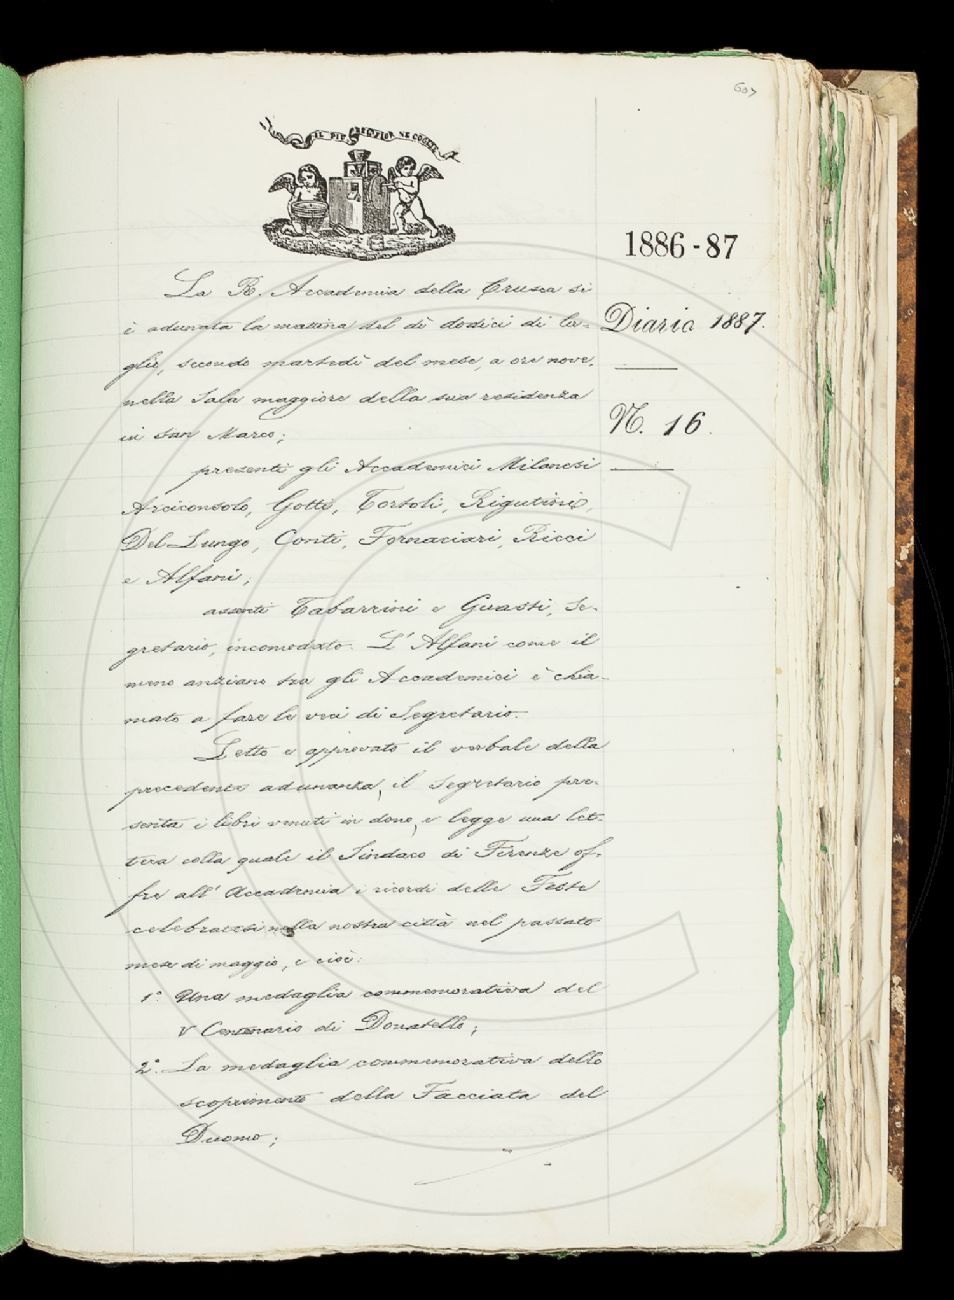 607
IL PIÙ BEL FIOR NE COGLIE
1886-87
Diario 1887.
N. 16.
La R. Accademia della Crusca si
è adunata la mattina del dì dodici di lu-
glio, secondo martedì del mese, a ore nove,
nella Sala maggiore della sua residenza
in San Marco;
presenti gli Accademici Milanesi
Arciconsolo, Gotti, Tortoli, Rigutini,
Del Lungo, Conti, Fornaciari, Ricci
e Alfani;
assenti Tabarrini e Guasti, Se-
gretario, incomodato. L'Alfani come il
meno anziano tra gli Accademici è chia-
mato a fare le veci di Segretario.
Letto e approvato il verbale della
precedente adunanza, il Segretario pre-
senta i libri venuti in dono, e legge una let-
tera colla quale il Sindaco di Firenze of-
fre all'Accademia i ricordi delle Feste
celebratesi nella nostra città nel passato
mese di maggio, e cioè:
1° Una medaglia commemorativa del
V Centenario di Donatello;
2° La medaglia commemorativa dello
scoprimento della Facciata del
Duomo;